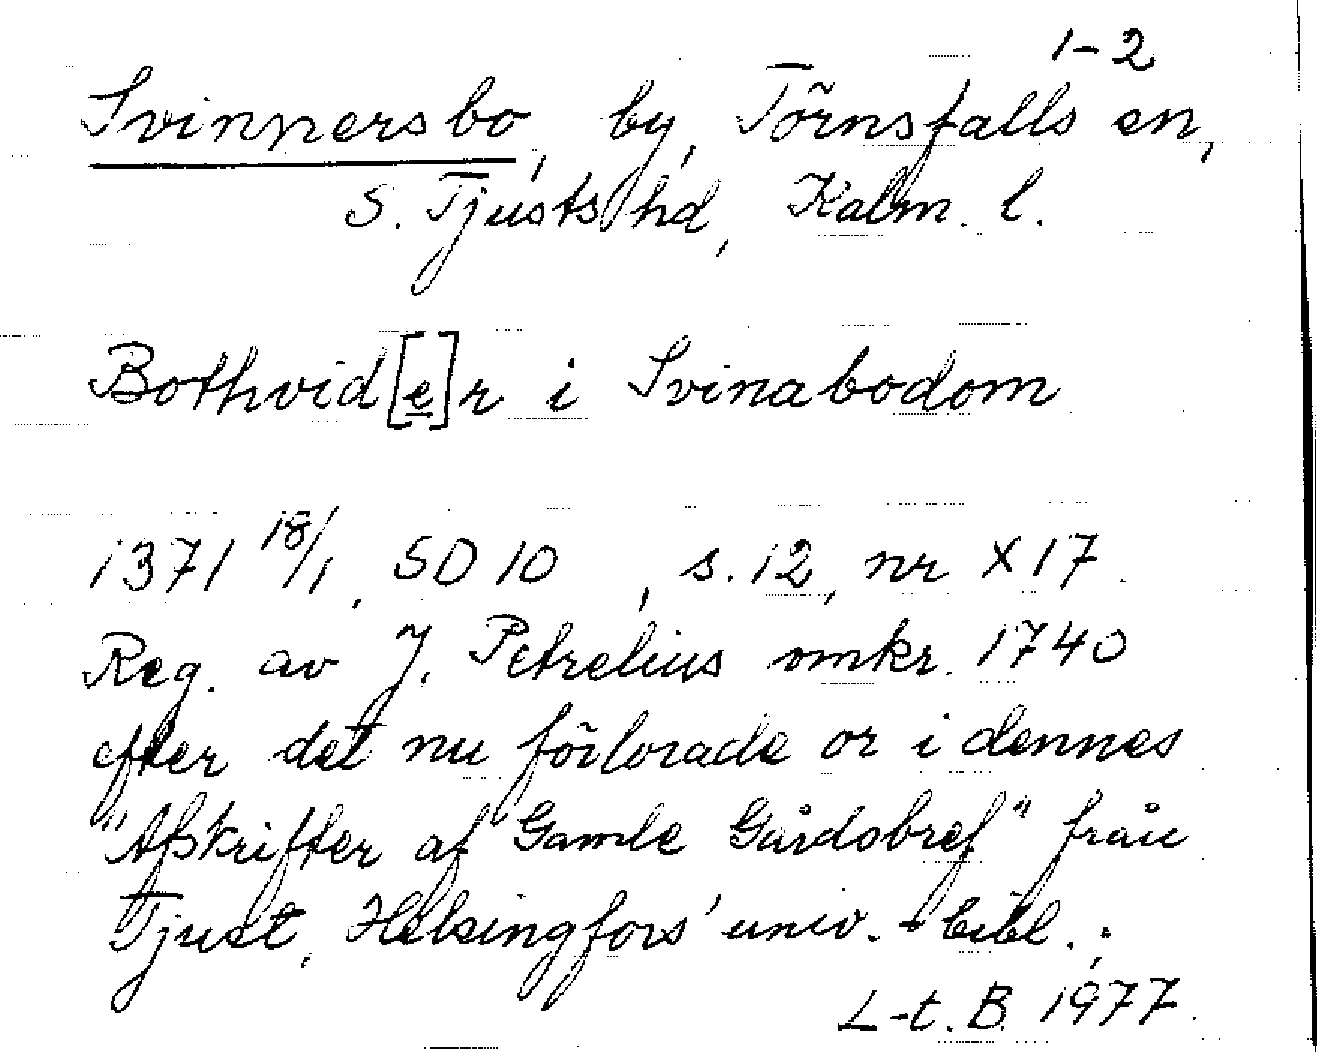 1-2
Svinnersbo, by, Törnsfalls sn,
S. Tjusts hd, Kalm. l.
Bothvid[e]r i Svinabodom
1371 18/1, SD 10 , s. 12, nr X 17.
Reg. av J. Petrelius omkr. 1740
efter det nu förlorade or i dennes
"Afskrifter af Gamle Gårdsbref" från
Tjust, Helsingfors' univ.-bibl.;
L-t. B. 1977.